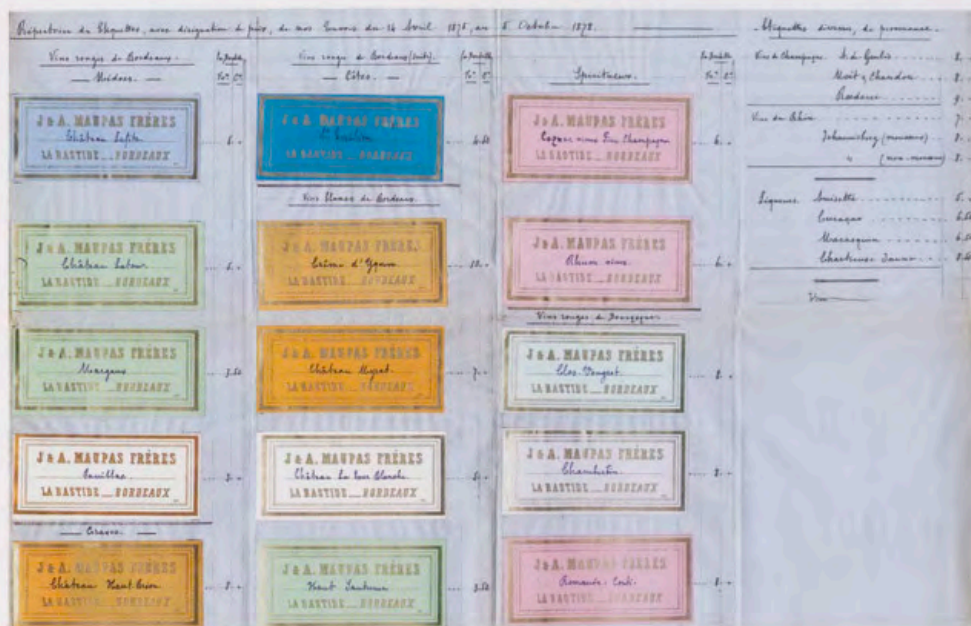 Répertoire des Etiquettes, avec désignation de prix, de mes Envois du 14 Avril 1875, au 5 Octobre 1878.
Vins rouges de Bordeaux.
— Médocs. —
J & A. MAUPAS FRÈRES
Château Lafite
LA BASTIDE _ BORDEAUX
6. "
J & A. MAUPAS FRÈRES
Château Latour
LA BASTIDE _ BORDEAUX
6. "
J & A. MAUPAS FRÈRES
Margaux
LA BASTIDE _ BORDEAUX
3.50
J & A. MAUPAS FRÈRES
Pauillac
LA BASTIDE _ BORDEAUX
3. "
— Graves. —
J & A. MAUPAS FRÈRES
Château Haut Brion
LA BASTIDE _ BORDEAUX
Vins rouges de Bordeaux (suite)
— Côtes. —
J & A. MAUPAS FRÈRES
St Emilion
LA BASTIDE _ BORDEAUX
Vins blancs de Bordeaux.
J & A. MAUPAS FRÈRES
Crème d'Yquem
LA BASTIDE _ BORDEAUX
10. "
J & A. MAUPAS FRÈRES
Château Myrat
LA BASTIDE _ BORDEAUX
7. "
J & A. MAUPAS FRÈRES
Château La Tour Blanche
LA BASTIDE _ BORDEAUX
J & A. MAUPAS FRÈRES
Haut Sauternes
LA BASTIDE _ BORDEAUX
3.50
Spiritueux.
J & A. MAUPAS FRÈRES
Cognac vieux Fine Champagne
LA BASTIDE _ BORDEAUX
6. "
J & A. MAUPAS FRÈRES
Rhum vieux
LA BASTIDE _ BORDEAUX
6. "
Vins rouges de Bourgogne.
J & A. MAUPAS FRÈRES
Clos-Vougeot
LA BASTIDE _ BORDEAUX
8. "
J & A. MAUPAS FRÈRES
Chambertin
LA BASTIDE _ BORDEAUX
8. "
J & A. MAUPAS FRÈRES
Romanée-Conti
LA BASTIDE _ BORDEAUX
8. "
Etiquettes diverses, de provenance.
Vins de Champagne.
Moët & Chandon
Roederer
Vins du Rhin
Johannisberg (mousseux)
" (non-mousseux)
Liqueurs. Anisette
Curaçao
Marasquin
Chartreuse Jaune